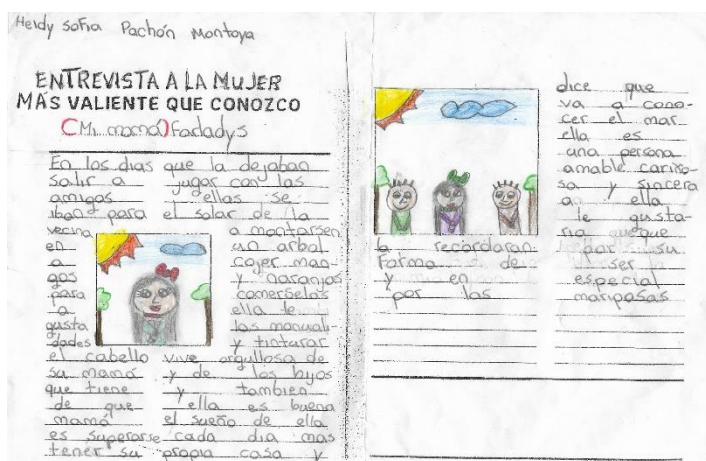 Heidy Sofia Pachón Montoya
ENTREVISTA A LA MUJER
MÁS VALIENTE QUE CONOZCO
(Mi mamá) Farladys
En los dias que la dejaban
salir a jugar con las
amigas ellas se
iban para el solar de la
vecina a montarsen
en un arbol
a cojer man-
gos y naranjas
para comerselas
a ella le
gusta las manuali-
dades y tinturar
el cabello vive orgullosa de
su mamá y de los hijos
que tiene y tambien
de que ella es buena
mamá el sueño de ella
es superarse cada dia mas
tener su propia casa y
dice que
va a cono-
cer el mar
ella es
una persona
amable cariño-
sa y sincera
a ella
le gusta-
ria que que
la recordaran por su
forma de ser
y en especial
por las mariposas